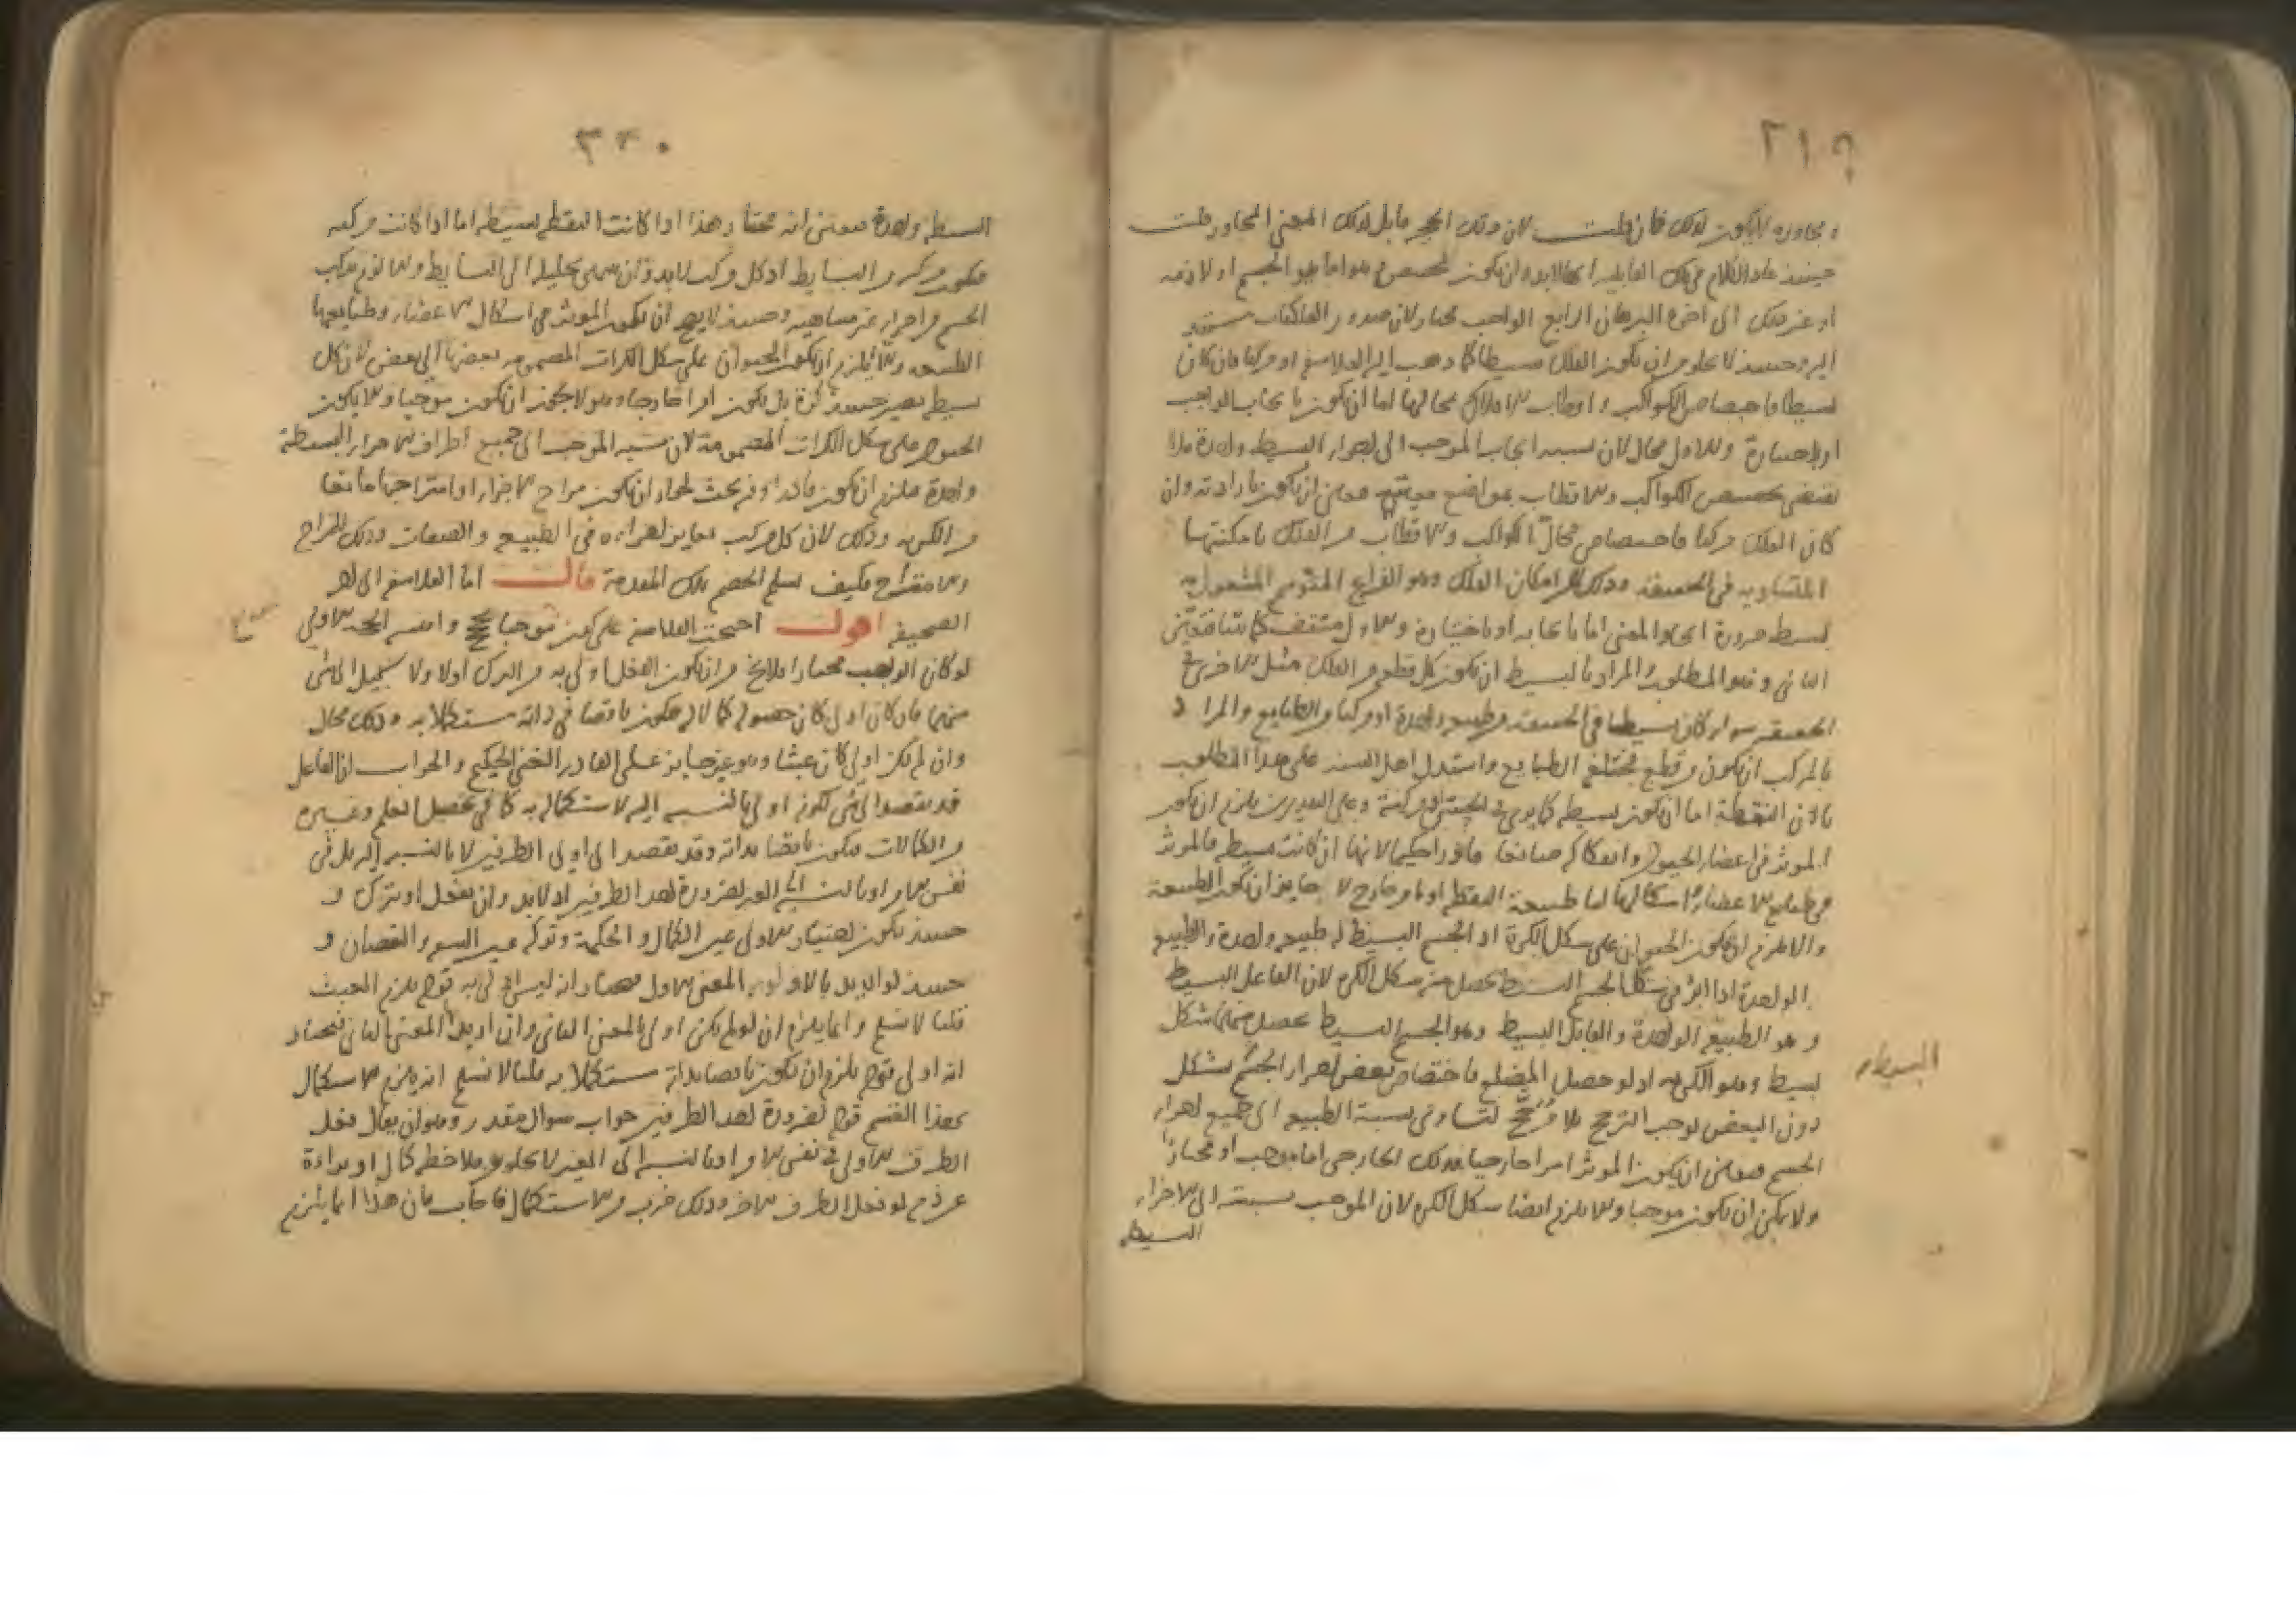 ٣١٩
ومجاوره لا يكون كذلك فان قلت لان ذلك الحجر قابل لذلك المعنى المجاور قلت
حينئذ عاد الكلام في تلك القابلية انها لابد وان يكون لمخصص وهو اما هو الجسم او لازمه
او غير ذلك الى اخره البرهان الرابع الواجب مختار لان صدور الفلكيات مستند
اليه وحينئذ لا يخلو من ان يكون الفلك بسيطا كما ذهب اليه الفلاسفة او مركبا فان كان
بسيطا فاختصاص الكواكب واقطاب الافلاك بمحالها اما ان يكون بايجاب الواجب
او باختياره والاول محال لان نسبة ايجاب الموجب الى اجزاء البسيط واحدة فلا
يقتضي تخصيص الكواكب والاقطاب بمواضع معينة فتعين ان يكون بارادته وان
كان الفلك مركبا فاختصاص محال الكواكب والاقطاب من الفلك بامكنتها
المتساوية في الحقيقة وذلك لان امكان الفلك وهو الفراغ المتوهم المشغول به
بسيط ضرورة اتحاد المعنى اما بايجابه او باختياره والاول منتف كما بينا فتعين
الثاني وهو المطلوب والمراد بالبسيط ان يكون كل قطعة من الفلك مثل الاخرى في
الحقيقة سواء كان بسيطا في الحقيقة وطبيعة واحدة او مركبا من الطبايع والمراد
بالمركب ان يكون من قطع مختلفة الطبايع واستدل اهل السنة على هذا المطلوب
بان النطفة اما ان يكون بسيطة كما يرى في الحس او مركبة وعلى التقديرين يلزم ان يكون
المؤثر في اعضاء الحيوان واشكاله صانعا قادرا حكيما لانها ان كانت بسيطة فالمؤثر
في طبايع الاعضاء واشكالها اما طبيعة النطفة او امر خارج لا جايز ان يكون الطبيعة
والا لزم ان يكون الحيوان على شكل الكرة اذ الجسم البسيط له طبيعة واحدة والطبيعة
الواحدة اذا اثر في شكل الجسم البسيط يحصل منه شكل الكرة لان الفاعل البسيط
وهو الطبيعة الواحدة والقابل البسيط وهو الجسم البسيط يحصل منهما شكل
بسيط وهو الكرية اذ لو حصل المضلع فاختصاص بعض اجزاء الجسم بشكل
دون البعض يوجب الترجيح بلا مرجح لتساوي نسبة الطبيعة الى جميع اجزاء
الجسم فتعين ان يكون المؤثر امرا خارجيا فذلك الخارجي اما موجب او مختار
ولا يمكن ان يكون موجبا والا يلزم ايضا شكل الكرة لان الموجب نسبته الى الاجزاء
البسيطة
البسيطة
٣٢٠
البسيطة واحدة فتعين انه مختار هذا اذا كانت النطفة بسيطة اما اذا كانت مركبة
فتكون مركبة من البسايط اذ كل مركب لابد وان ينتهي تحليله الى البسايط والا لزم تركب
الجسم من اجزاء غير متناهية وحينئذ لا يجوز ان يكون المؤثر في اشكال الاعضاء وطبايعها
الطبيعة والا يلزم ان يكون الحيوان على شكل الكرات المضموم بعضها الى بعض لان كل
بسيط يصير حينئذ كرة بل يكون امرا خارجا وهو لا يجوز ان يكون موجبا والا يكون
الحيوان على شكل الكرات المضمومة لان نسبة الموجب الى جميع اطراف الاجزاء البسيطة
واحدة فيلزم ان يكون قادرا وفيه بحث لجواز ان يكون مزاج الاجزاء او امتزاجها مانعا
من الكرية وذلك لان كل مركب يغاير اجزاءه في الطبيعة والصفات وذلك للمزاج
والامتزاج فكيف يسلم الخصم تلك المقدمة قال اما الفلاسفة الى اخر
الصحيفة اقول احتجت الفلاسفة على كونه موجبا الحجة الاولى
لو كان الواجب مختارا فلا يخ من ان يكون الفعل اولى به من الترك او لا ولا سبيل الى شي
منهما فان كان اولى كان حصوله كمالا له فيكون ناقصا في ذاته مستكملا به وذلك محال
وان لم يكن اولى كان عبثا وهو غير جايز على القادر الغني الحكيم والجواب ان الفاعل
قد يقصد الى شي لكونه اولى بالنسبة اليه لاستكماله به كما في تحصيل العلم وغيره
من الكمالات فيكون ناقصا بذاته وقد يقصد الى اولى الطرفين لا بالنسبة اليه بل في
نفس الامر او بالنسبة الى الغير لضرورة احد الطرفين اذ لابد وان يفعل او يترك و
حينئذ يكون اختيار الاولى عين الكمال والحكمة وتركه عين السفه والنقصان و
حينئذ لو اريد بالاولوية المعنى الاول نختار انه ليس اولى به قوله يلزم العبث
قلنا لا نسلم وانما يلزم ان لو لم يكن اولى بالمعنى الثاني وان اريد المعنى الثاني فنختار
انه اولى قوله يلزم ان يكون ناقصا بذاته مستكملا به قلنا لا نسلم انه يلزم الاستكمال
بهذا القسم قوله لضرورة احد الطرفين جواب سؤال مقدر وهو ان يقال فعل
الطرف الاولى في نفس الامر او بالنسبة الى الغير لا يخلو من ملاحظة كمال او براءة
عن ذم لو فعل الطرف الاخر وذلك ضرب من الاستكمال فاجاب بان هذا انما يلزم